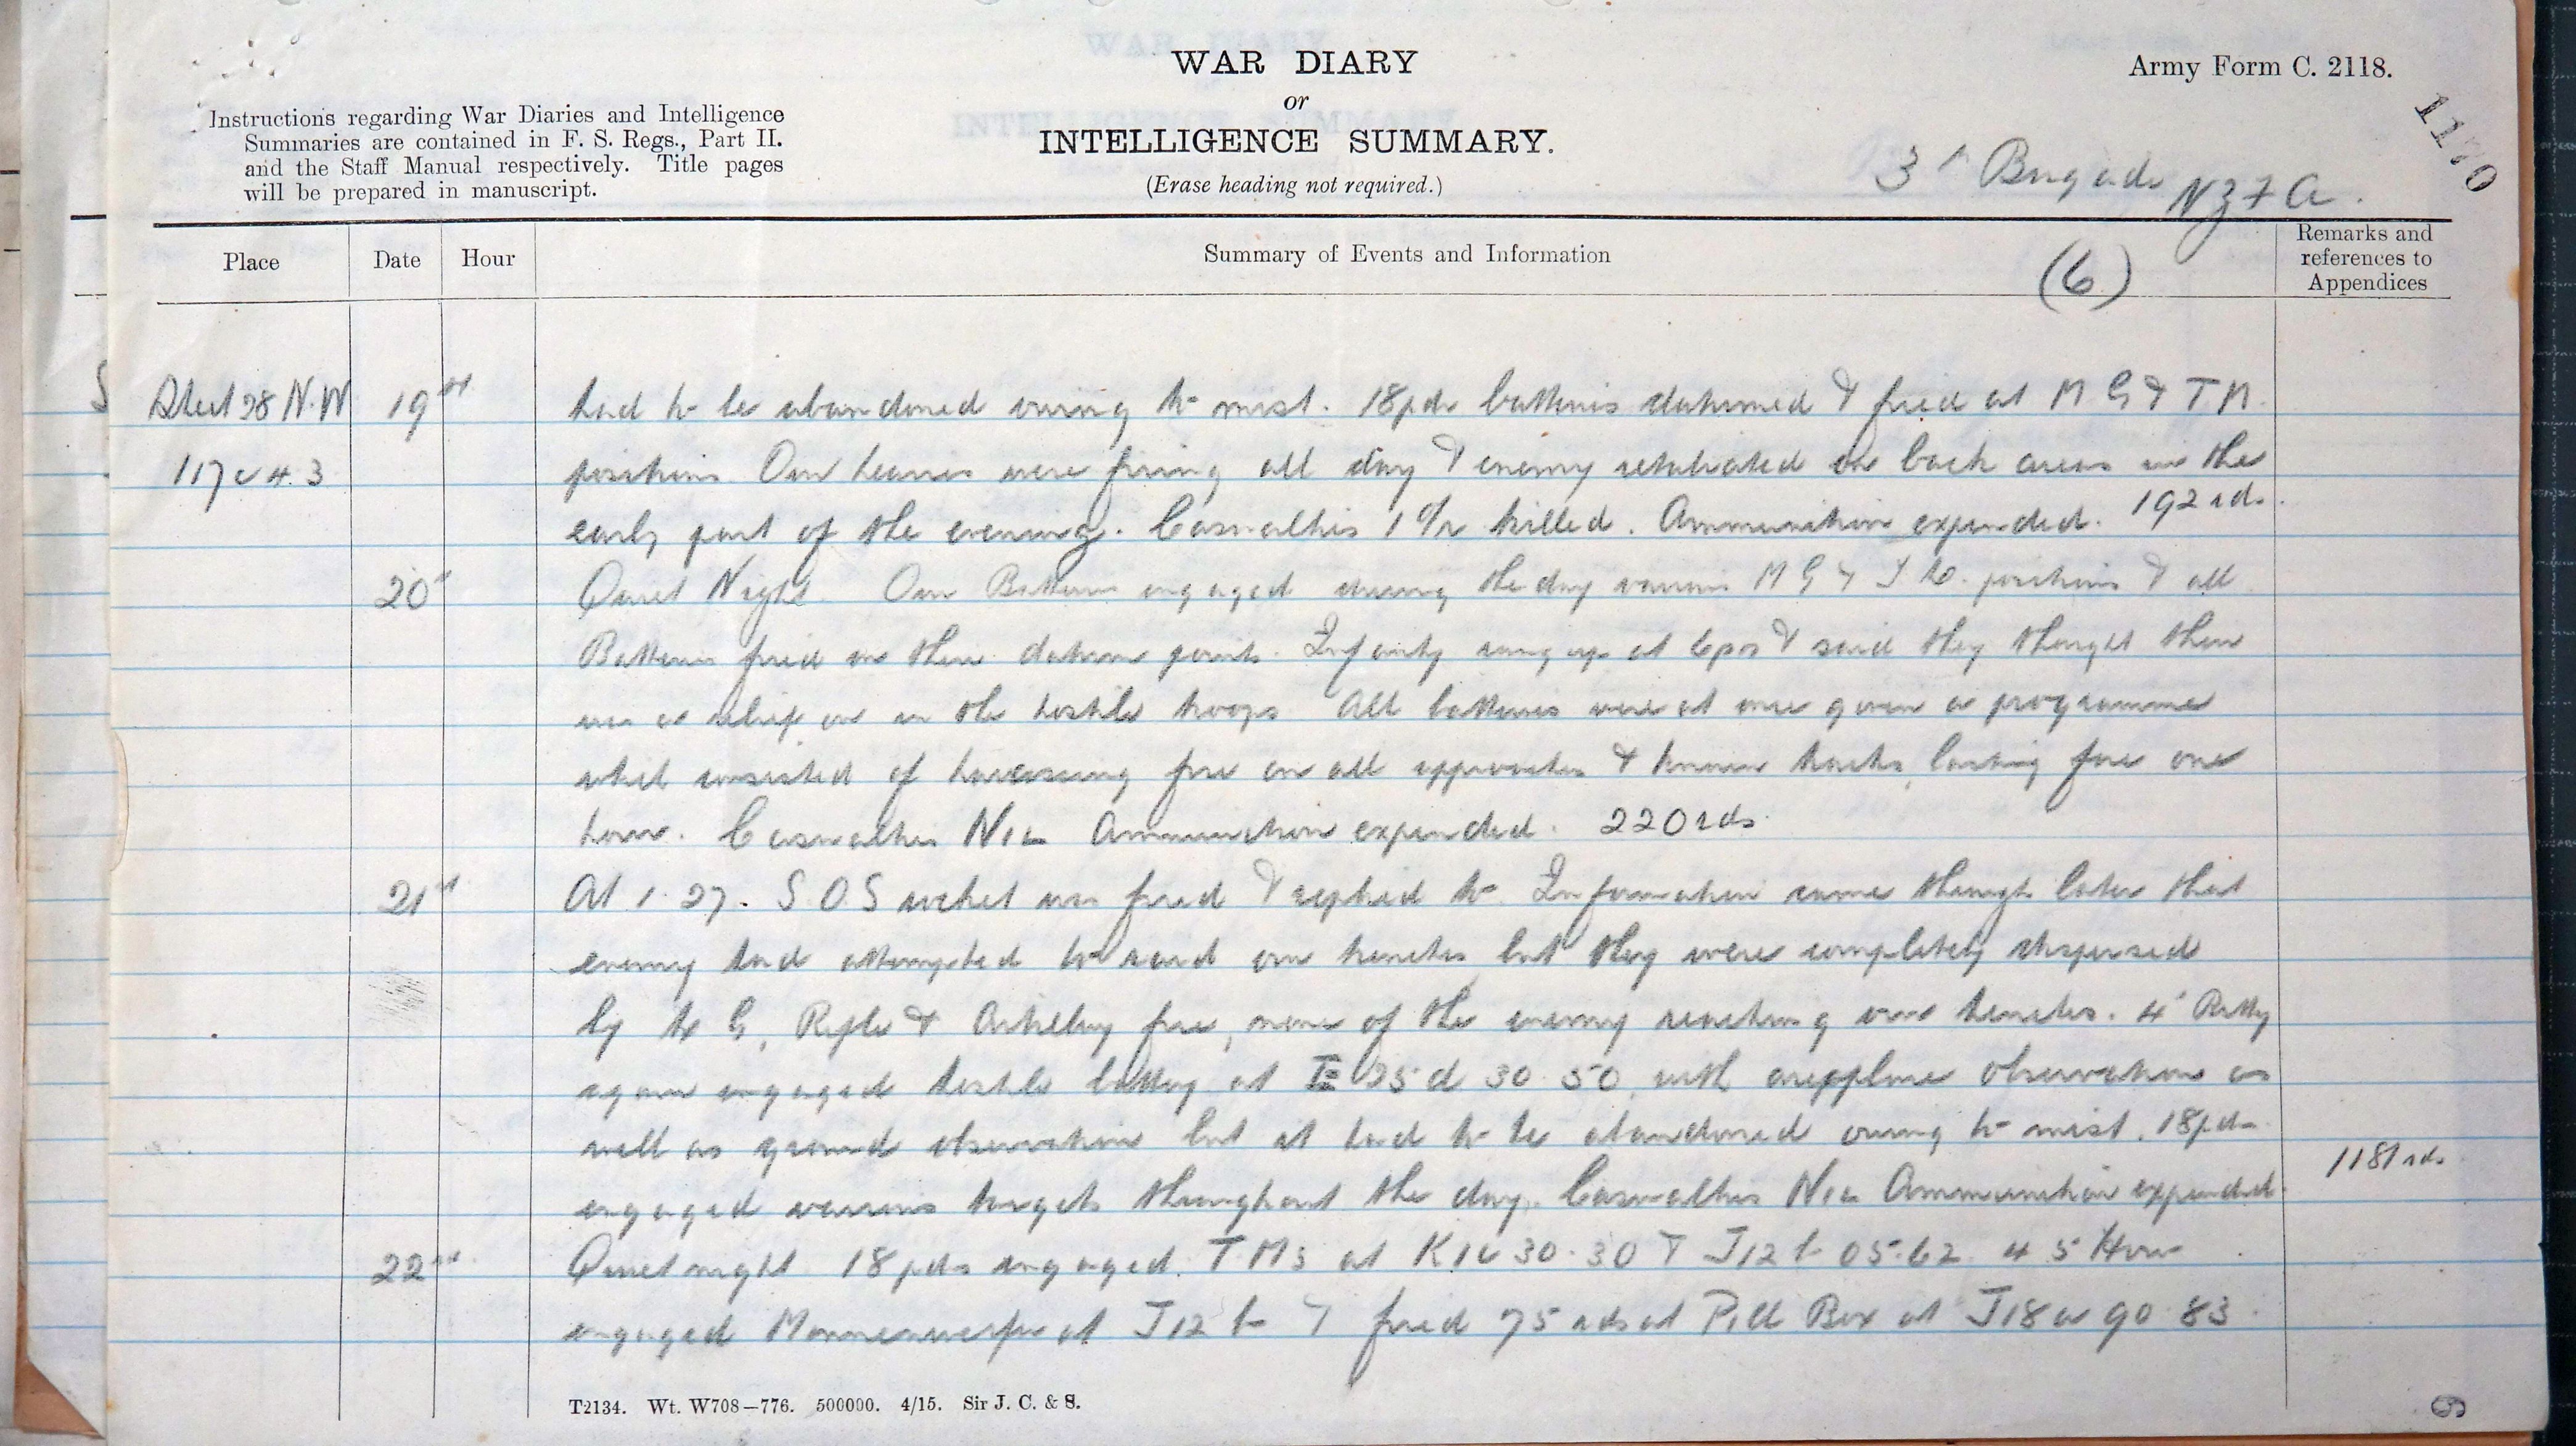 WAR DIARY
or
INTELLIGENCE SUMMARY.
(Erase heading not required.)
Army Form C. 2118.
1170
Instructions regarding War Diaries and Intelligence
Summaries are contained in F. S. Regs., Part II.
and the Staff Manual respectively. Title pages
will be prepared in manuscript.
3rd Brigade NZFA.
(6)
Place Date Hour Summary of Events and Information Remarks and references to Appendices
Sheet 28 N.W 19th had to be abandoned owing to mist. 18pdr batteries datumed & fired at M G & T M
I 17 c 4.3 positions. Our heavies were firing all day & enemy retaliated on back areas in the
early part of the evening. Casualties 1 O/R killed. Ammunition expended. 192 rds.
20th Quiet Night. Our Batteries engaged during the day various M G & T M. positions & all
Batteries fired on their datum points. Infantry rang up at 6pm & said they thought there
was a relief on in the hostile troops. All batteries were at once given a programme
which consisted of harassing fire on all approaches & known tracks, lasting for one
hour. Casualties Nil Ammunition expended. 220 rds.
21st At 1.27. S O S rocket was fired & replied to. Information came through later that
enemy had attempted to raid our trenches but they were completely dispersed
by M G, Rifle & Artillery fire, none of the enemy reaching our trenches. 4" Batty
again engaged hostile battery at 25 d 30.50, with aeroplane observation as
well as ground observation but it had to be abandoned owing to mist. 18pdrs
engaged various targets throughout the day. Casualties Nil Ammunition expended 1181 rds
22nd Quiet night 18pdrs engaged T.Ms at 30.30 & J12 b 05.62. 4 5 How
engaged Minnenwerfer at J12 b & fired 75 rds at Pill Box at J18 a 90.83.
T2134. Wt. W708—776. 500000. 4/15. Sir J. C. & S.